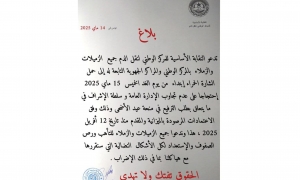 14 ماي 2025
بلاغ
تدعو النقابة الأساسية للمركز الوطني لنقل الدم جميع الزميلات
والزملاء بالمركز الوطني والمراكز الجهوية التابعة له إلى حمل
الشارة الحمراء إبتداء من يوم الغد الخميس 15 ماي 2025
إحتجاجا على عدم تجاوب الإدارة العامة و سلطة الإشراف في
ما يتعلق بطلب الترفيع في منحة عيد الأضحى وذلك وفق
الاعتمادات المرصودة بالميزانية والمقدم منذ تاريخ 12 أفريل
2025 ، هذا وندعوا جميع الزميلات والزملاء للتأهب ورص
الصفوف والإستعداد لكل الأشكال النضالية التي ستقررها
هياكلنا بما في ذلك الإضراب.
الحقوق تفتك ولا تهدى